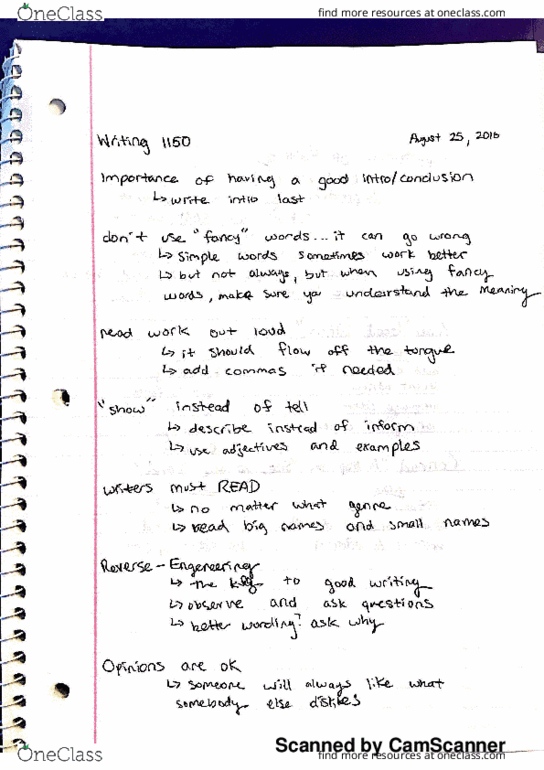 OneClass
find more resources at oneclass.com
Writing 1150
August 25, 2016
Importance of having a good intro/conclusion
↳ write intro last
don't use "fancy" words... it can go wrong
↳ simple words sometimes work better
↳ but not always, but when using fancy
words, make sure you understand the meaning
read work out loud
↳ it should flow off the tongue
↳ add commas if needed
"show" instead of tell
↳ describe instead of inform
↳ use adjectives and examples
writers must READ
↳ no matter what genre
↳ read big names and small names
Reverse-Engeneering
↳ the key to good writing
↳ observe and ask questions
↳ better wording? ask why
Opinions are ok
↳ someone will always like what
somebody else dislikes
Scanned by CamScanner
OneClass
find more resources at oneclass.com